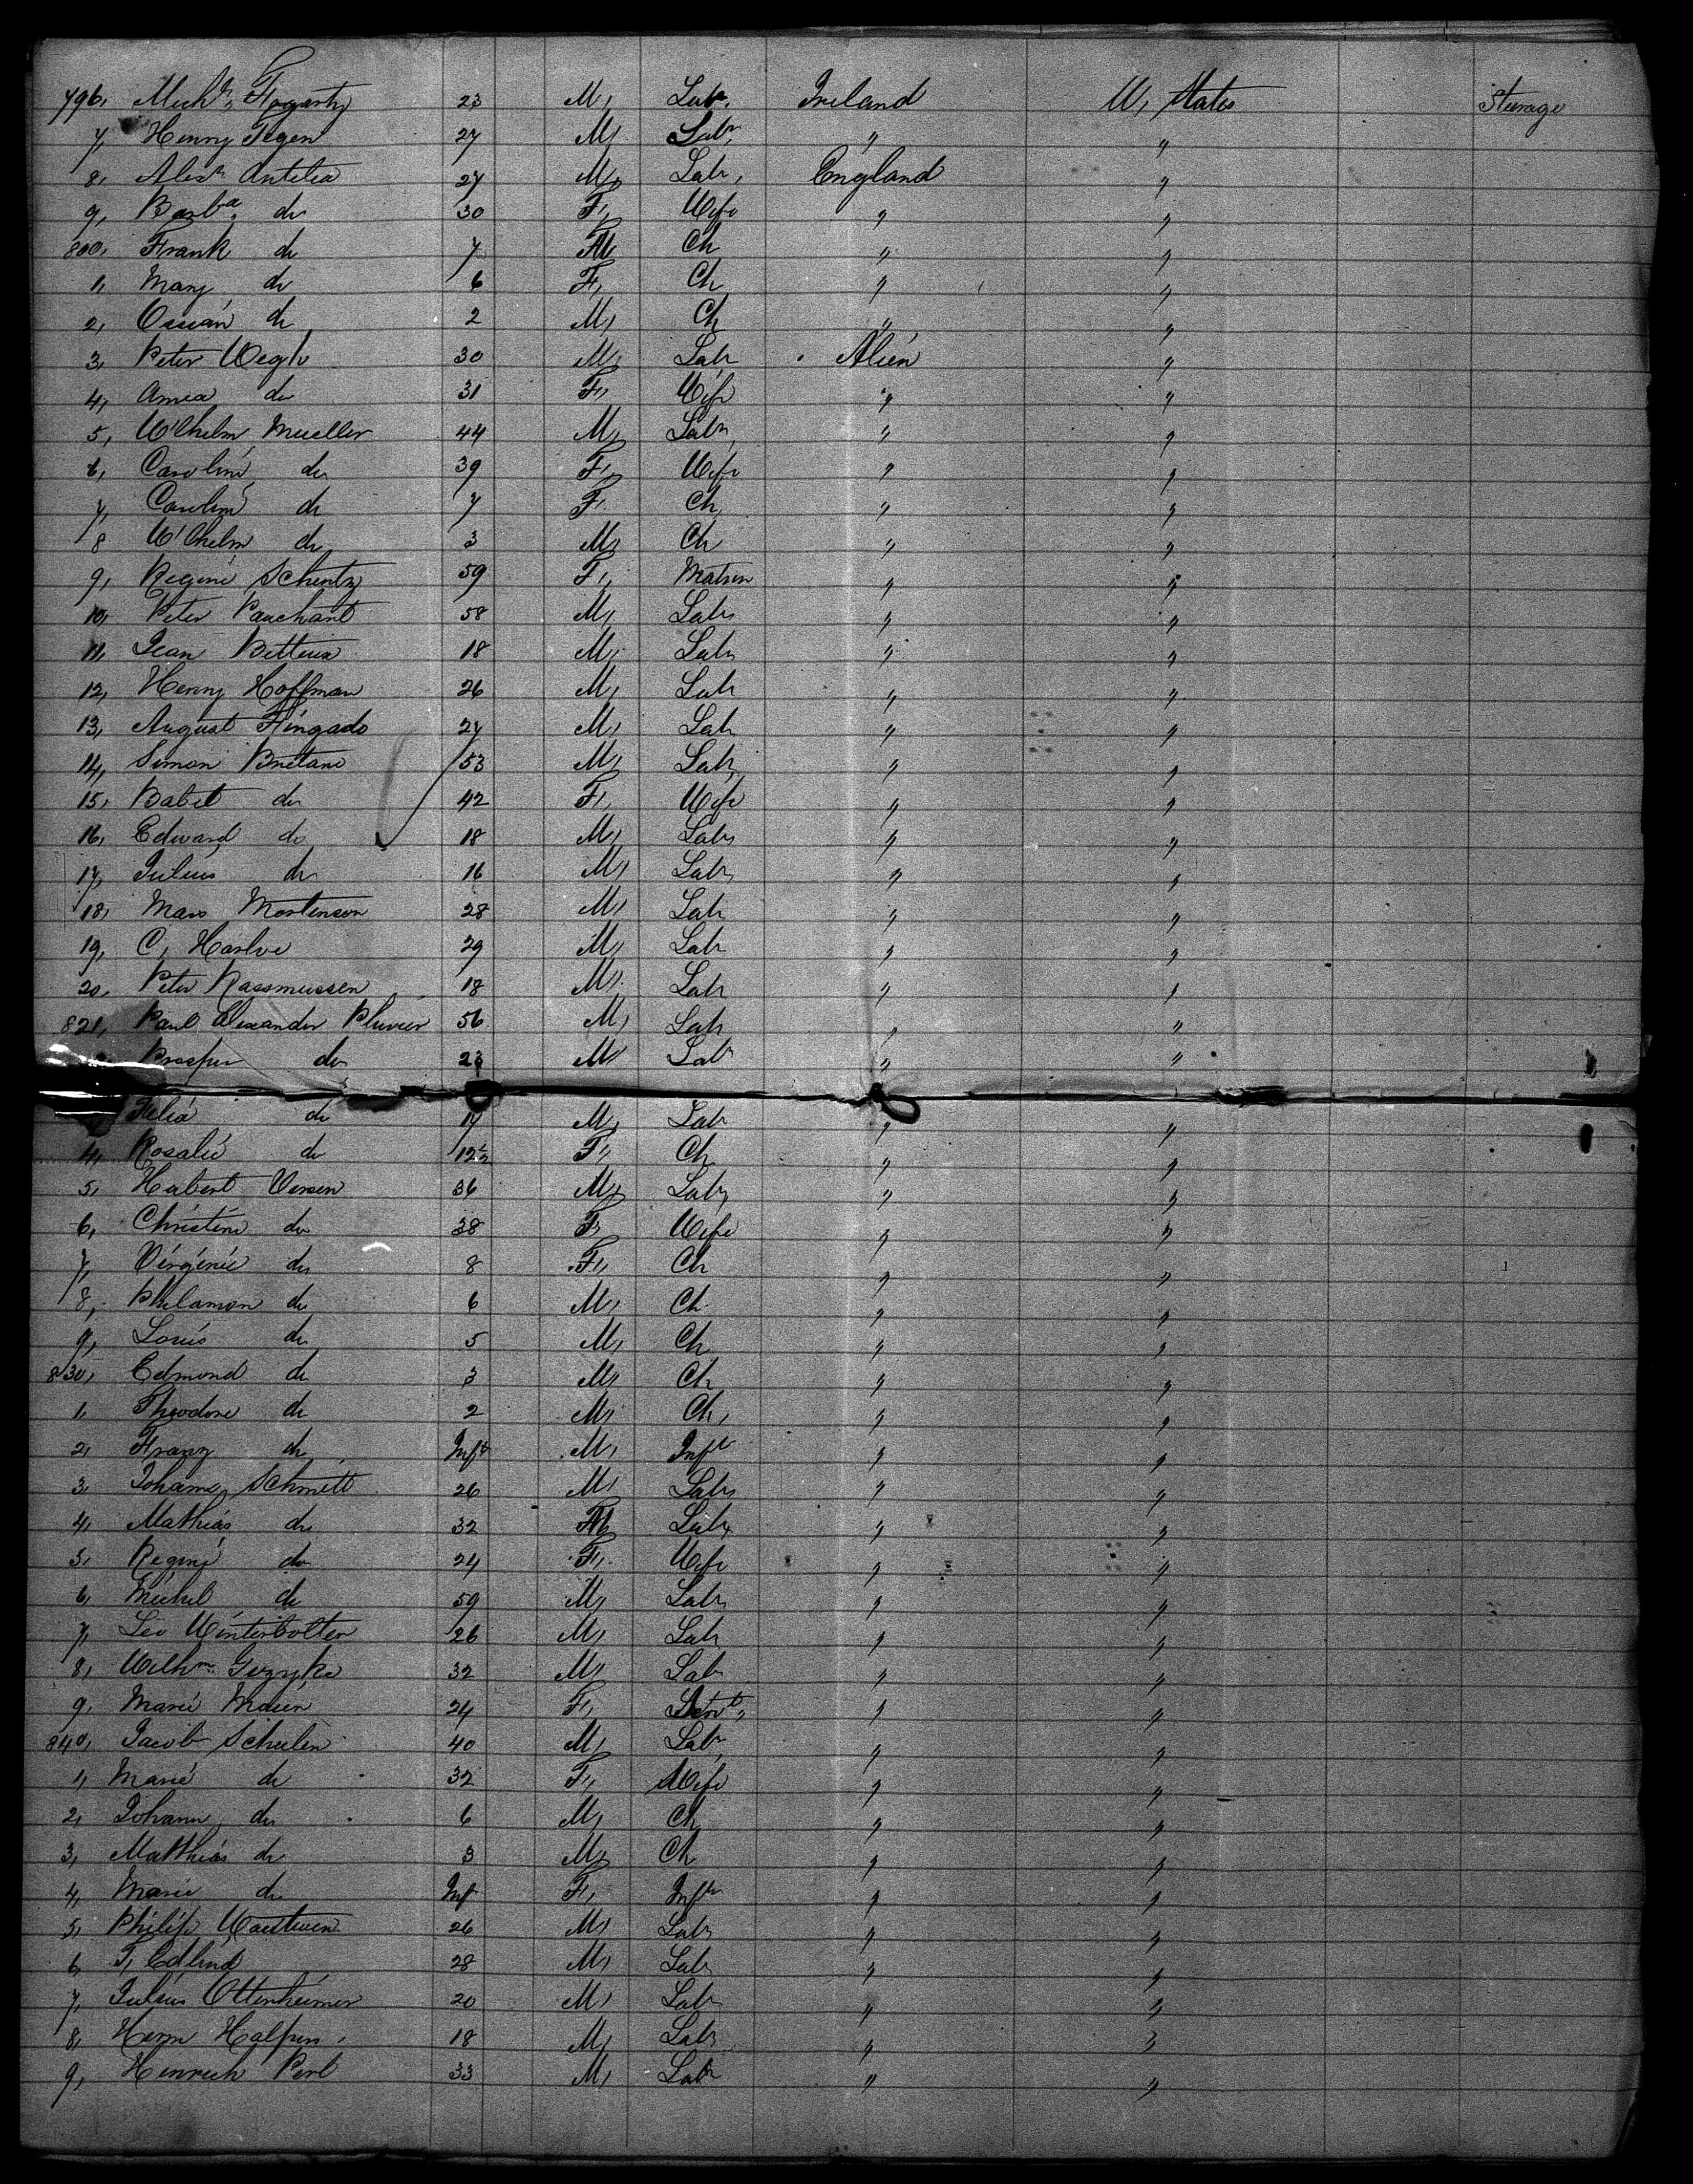 796, Mich^l, Fogarty 23 M, Labr, Ireland U, States Steerage
7, Henny Tegen 27 M, Labr, " "
8, Alexr Antelia 27 M, Labr, England "
9, Barb^a, do 30 F, Wife " "
800, Frank do 7 M Ch " "
1, Mary do 6 F, Ch " "
2, Ossian do 2 M, Ch " "
3, Peter Wegh 30 M, Labr Alien "
4, Anna do 31 F, Wife " "
5, Wilhelm Mueller 44 M, Labr, " "
6, Caroline do 39 F, Wife " "
7, Caroline do 7 F, Ch, " "
8 Wilhelm do 3 M, Ch " "
9, Regine Schentz 59 F, Matron " "
10, Peter Pauchant 58 M, Labr " "
11, Jean Bettein 18 M, Labr " "
12, Henry Hoffman 26 M, Labr " "
13, August Fingado 27 M, Labr " "
14, Simon Bretano 53 M, Labr " "
15, Babet do 42 F, Wife " "
16, Edward do 18 M, Labr " "
17, Julius do 16 M, Labr " "
18, Mars Mortenson 28 M, Labr " "
19, C, Harlve 29 M, Labr " "
20, Peter Rassmussen 18 M, Labr " "
821, Paul Alexander Pluvier 56 M, Labr " "
Prosper do 23 M Labr " "
Julia do 17 M, Labr " "
4, Rosalie do 12½ F, Ch " "
5, Hubert Versen 36 M, Labr " "
6, Christine do 38 F, Wife " "
7, Virginie do 8 F, Ch " "
8, Philamon do 6 M, Ch " "
9, Louis do 5 M, Ch " "
830, Edmond do 3 M, Ch " "
1, Theodore do 2 M, Ch, " "
2, Franz do Inft M, Inft " "
3, Johann Schmitt 26 M, Labr " "
4, Mathias do 32 M Labr " "
5, Regine do 24 F, Wife " "
6, Michel do 59 M, Labr " "
7, Leo Winterbolter 26 M, Labr " "
8, Wilhm Gezyke 32 M, Labr " "
9, Marie Maien 24 F, Servt, " "
840, Jacob Schulin 40 M, Labr " "
1, Marie do 32 F, Wife " "
2, Johann do 6 M, Ch " "
3, Matthias do 3 M, Ch " "
4, Marie do Inf F, Inft " "
5, Philip 26 M, Labr " "
6, F, Edlind 28 M, Labr " "
7, Julius Ottenheimer 20 M, Labr " "
8, Herm Halpern 18 M, Labr " "
9, Heinrich Perl 33 M, Labr " "